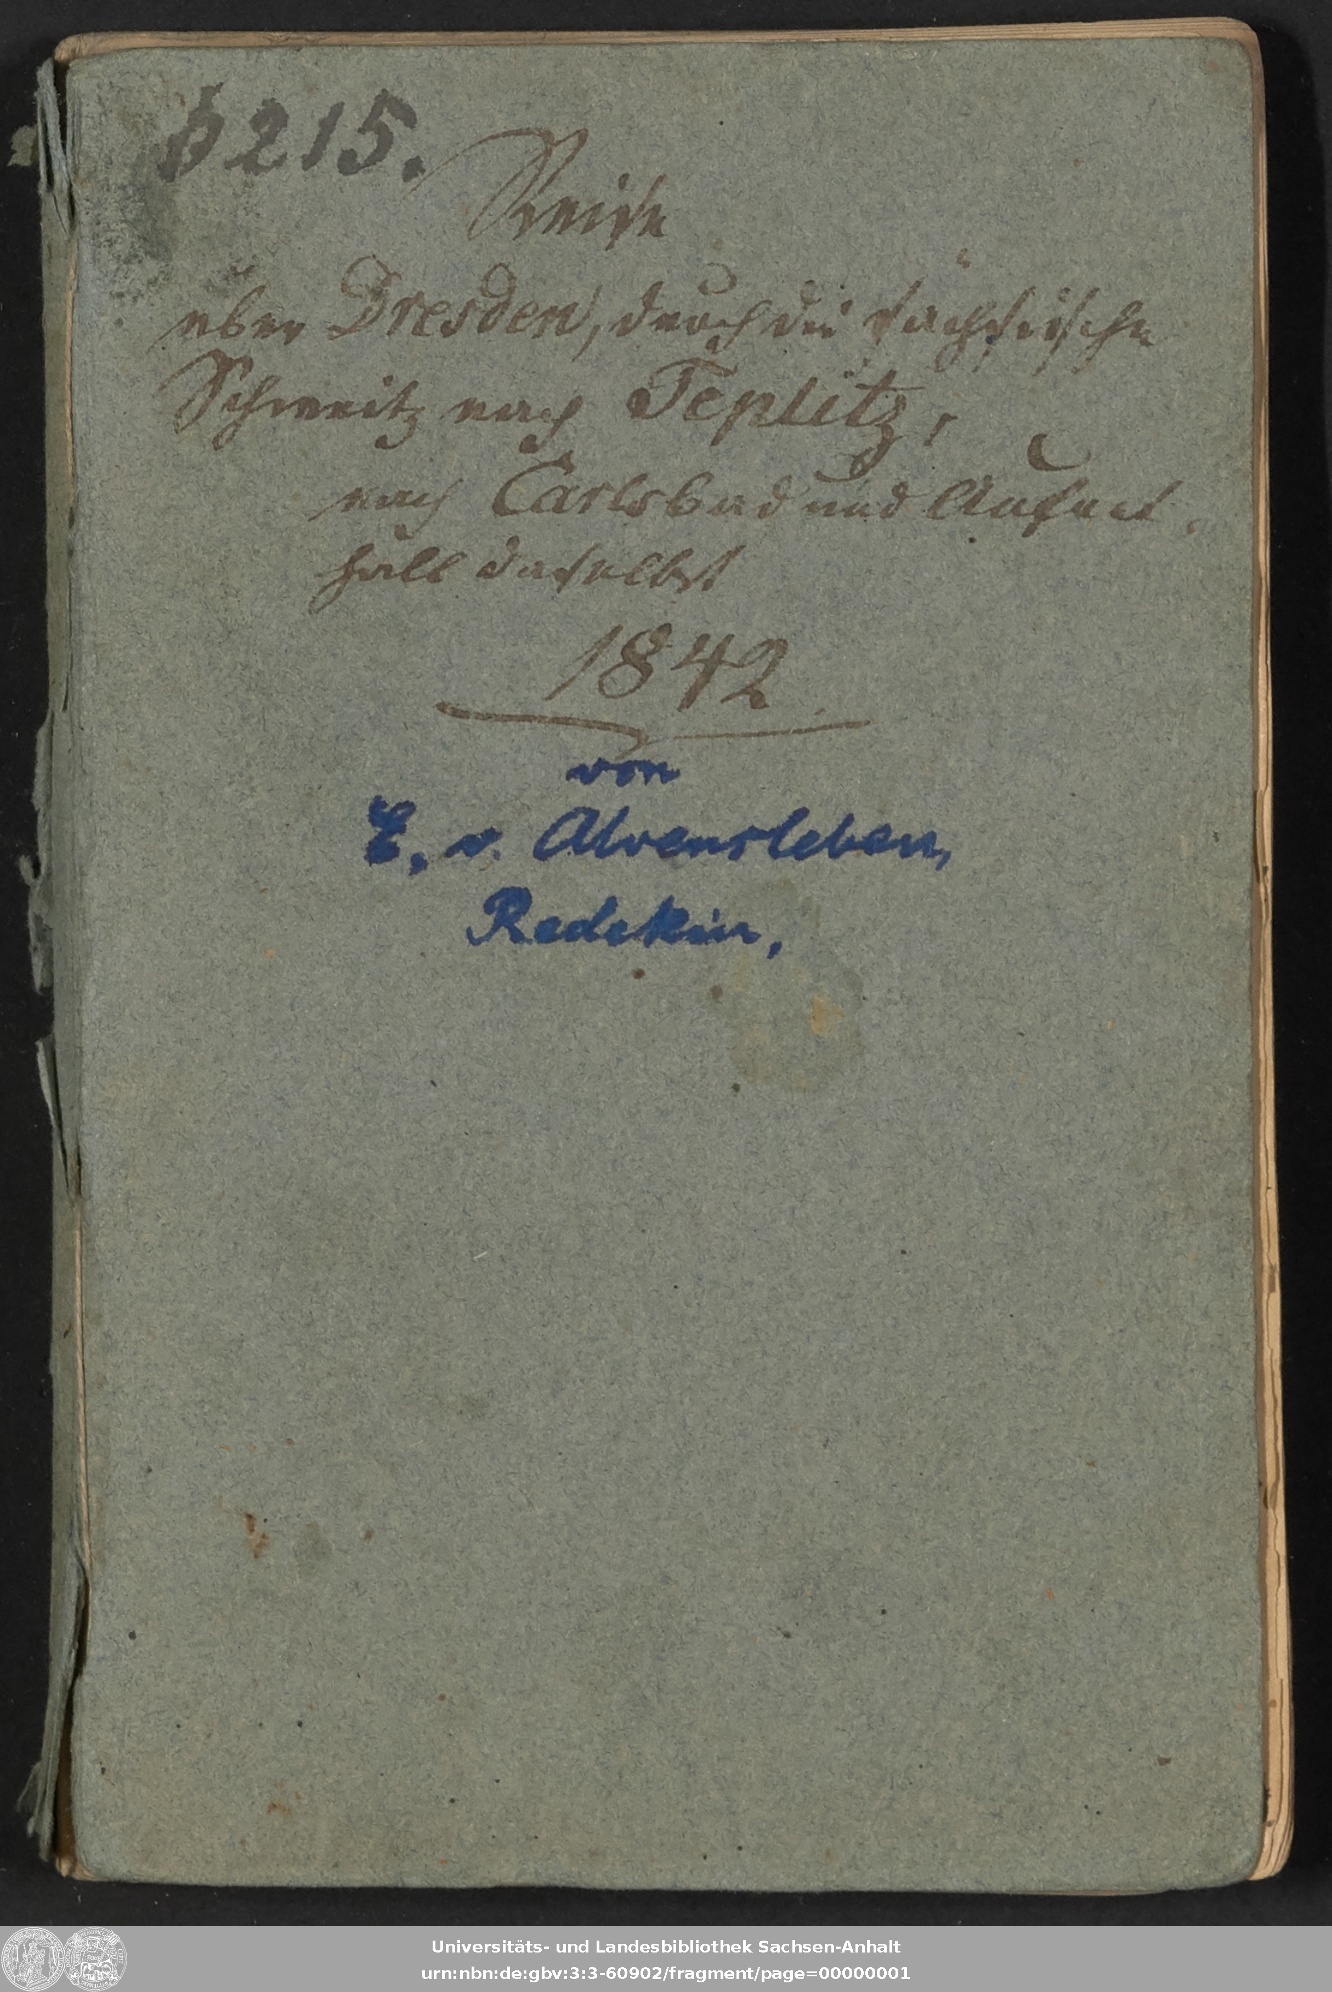 b 215.
Reise
über Dresden, durch die sächsische
Schweitz nach Teplitz,
nach Carlsbad und Aufent
halt daselbst
1842
von
E. v. Alvensleben,
Redekin,
Universitäts- und Landesbibliothek Sachsen-Anhalt
urn:nbn:de:gbv:3:3-60902/fragment/page=00000001